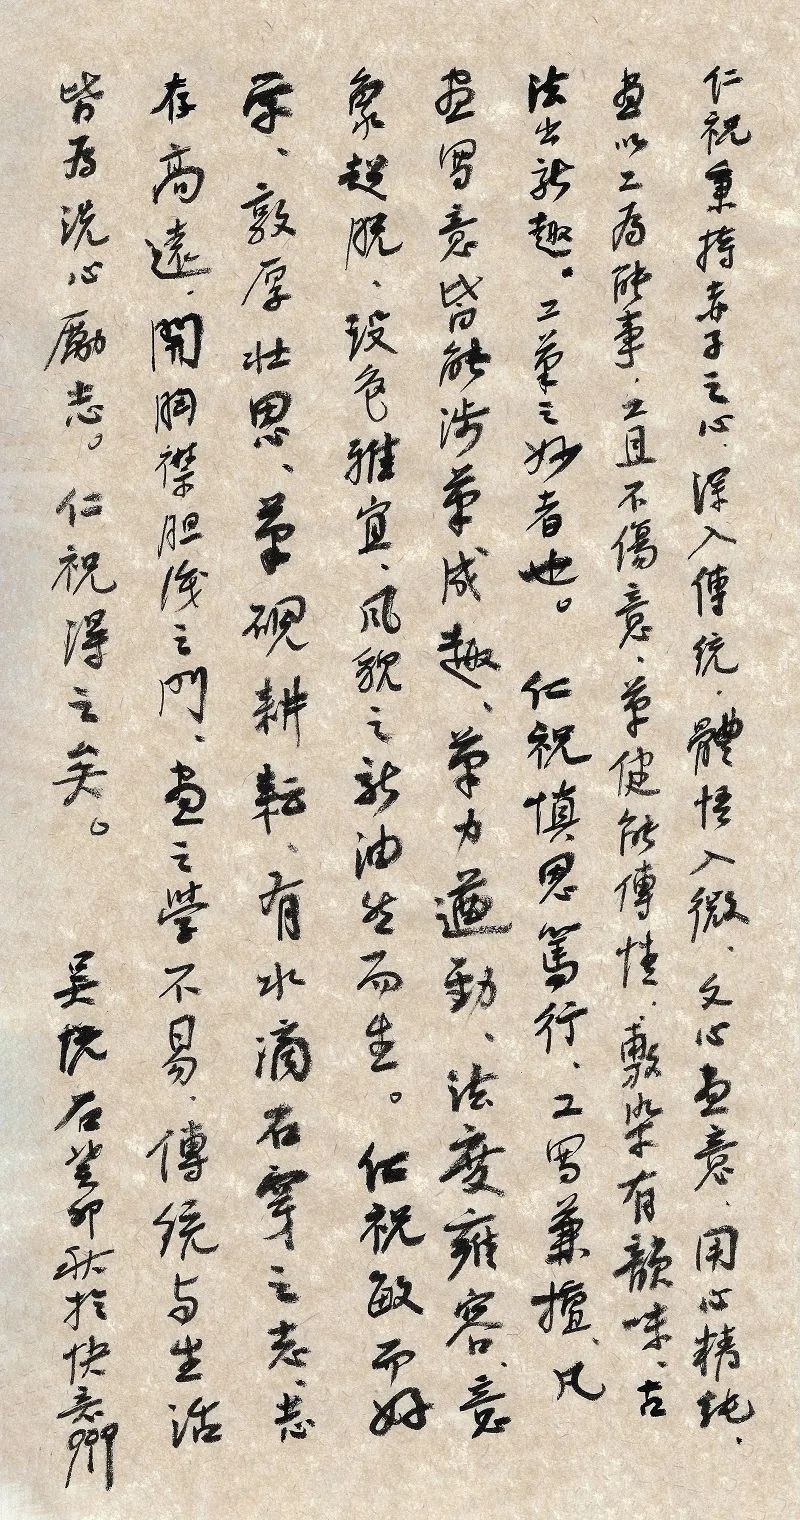 仁祝秉持赤子之心、深入傳统、體悟入微、文心画意、用心精純、
画以工为能事、工且不傷意、笔健能傳情、敷染有韻味、古
法出新趣。工笔之妙者也。仁祝慎思篤行、工写兼擅、凡
画写意皆能涉笔成趣、笔力遒劲、法度雍容、意
象超脱、設色雅宜、风貌之新油然而生。仁祝敏而好
学、敦厚壮思、笔砚耕耘、有水滴石穿之志、志
存高遠、開胸襟胆识之门、画之學不易、傳统与生活
皆为洗心勵志。仁祝得之矣。吴悦石癸卯秋於快意